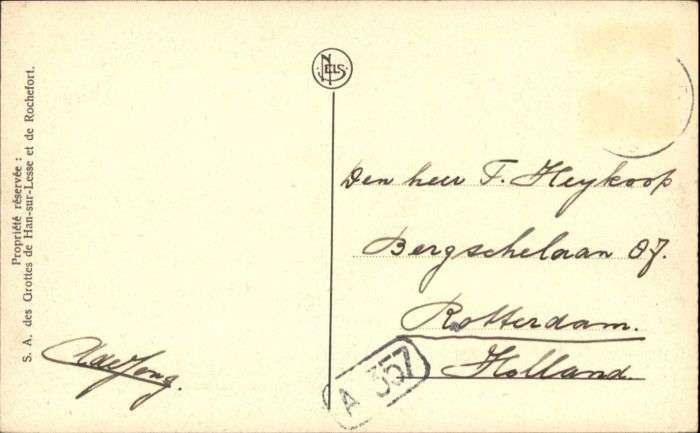 Propriété réservée :
S. A. des Grottes de Han-sur-Lesse et de Rochefort.
NELS
Den heer F. Heykoop
Bergschelaan 87.
Rotterdam.
Holland.
A 357
A de Jong.